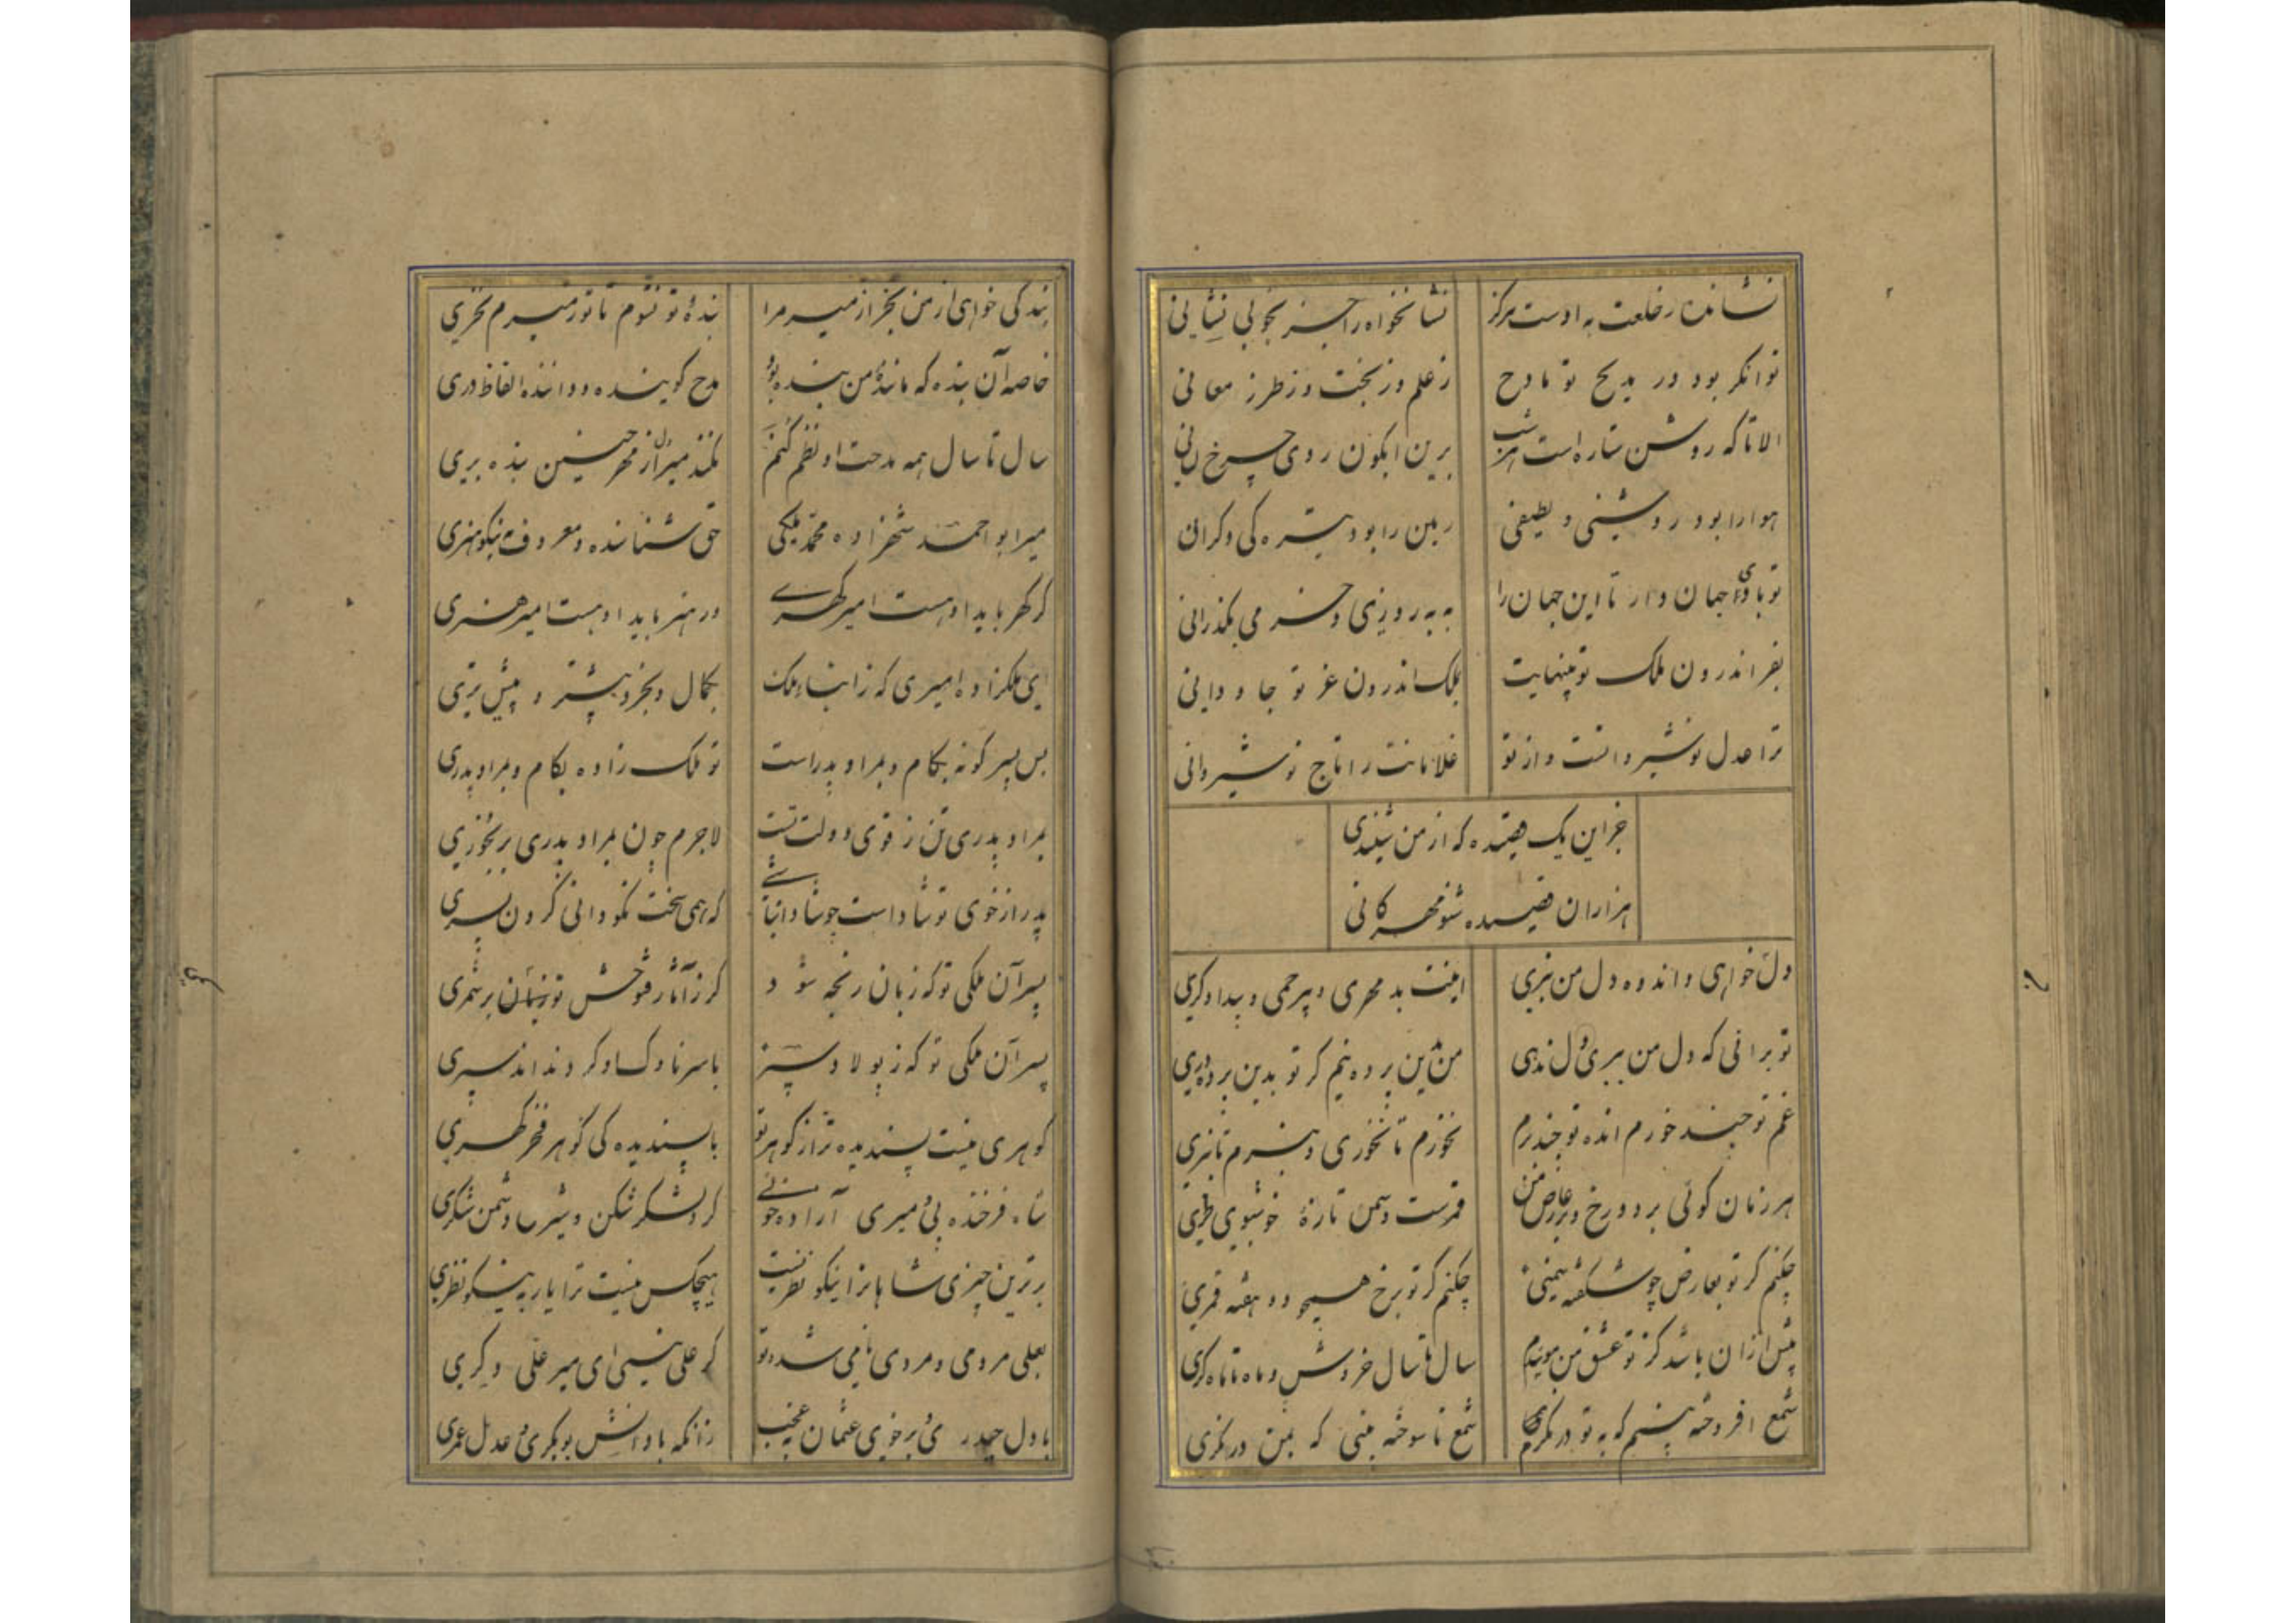 نشاننده خلعت به اوست هرگز نشانخواه را جز بخوبی نشانی
توانگر بود در مدیح تو مادح ز علم و ز بخت و ز طرز معانی
الا تا که روشن ستاره است هر شب برین ابکون روی چرخ
هوا را بود روشنی و لطیفی زمین را بود تیره کی و کرانی
تو بادی جهان دار تا این جهان را به به روزی و خرمی بگذرانی
بفر اندرون ملک تو بینهایت بملک اندرون عز تو جاودانی
ترا عدل نوشیروانست و از تو غلامانت را تاج نوشیروانی
جز این یک قصیده که از من شنیدی
هزاران قصیده شنو مهرکانی
دل خواهی و اندوه دل من نبری اینت بد مهری و بیرحمی و بیدادکری
تو برانی که دل من ببری دل ندهی من بدین پرده نیم کر تو بدین پرده دری
غم تو چند خورم انده تو چند برم نخورم تا نخوری و نبرم تا نبری
هر زمان کوئی بر دو رخ و بر عارض من قمرست و سمن تازهٔ خوشبوی طری
چکنم کر تو بعارض چو شکفته سمنی چکنم کر تو برخ همچو دو هفته قمری
پیش ازان باشد کز تو عشق من مویم سال تا سال خروش و ماه تا ماه کری
شمع افروخته بینم که به تو درنکرم شمع ناسوخته بینی که بمن درنکری
بندکی خواهی از من بخر از میر مرا بندهٔ تو نشوم تا تو ز میرم نخری
خاصه آن بنده که مانندهٔ من بنده بود مدح کوینده و داننده الفاظ دری
سال تا سال همه مدحت او نظم کنم نکند میر از مهر چنین بنده بری
میر ابو احمد شهزاده محمد ملکی حق شناسنده و معروف به نیکو نظری
کر کهر باید او هست امیر کهری ور هنر باید او هست امیر هنری
ای ملکزاده امیری که ز ابناء ملک بکمال و بخرد بیشتر و پیش تری
بس پسر کونه بکام و بمراد پدر است تو ملک زاده بکام و بمراد پدری
بمراد پدری تن ز قوی دولت تست لاجرم چون بمراد پدری برنخوری
پدر از خوی تو شاد است چو شاد که همی سخت نکو دانی کردن پسری
پسر آن ملکی تو که زبان رنجه شود کر ز آثار فتوحش تو برشمری
پسر آن ملکی تو که ز پولاد سپر با سر ناوک او کردند اند سپری
کوهری نیست پسندیده تر از کوهر تو با پسندیده کی کوهر فخر کهری
شاه فرخنده پی و میری آزاده خوئی کرد لشکرشکن و شیر دشمن شکری
برترین چیزی شاهانرا نیکو نظریست هیچکس نیست ترا یار به نیکو نظری
بعلی مردمی و مردی نامی شده تو کر علی نیسی ای میر علی دکری
با دل حیدری و بر خوی عثمان زانکه با دانش بوبکری و عدل عمری